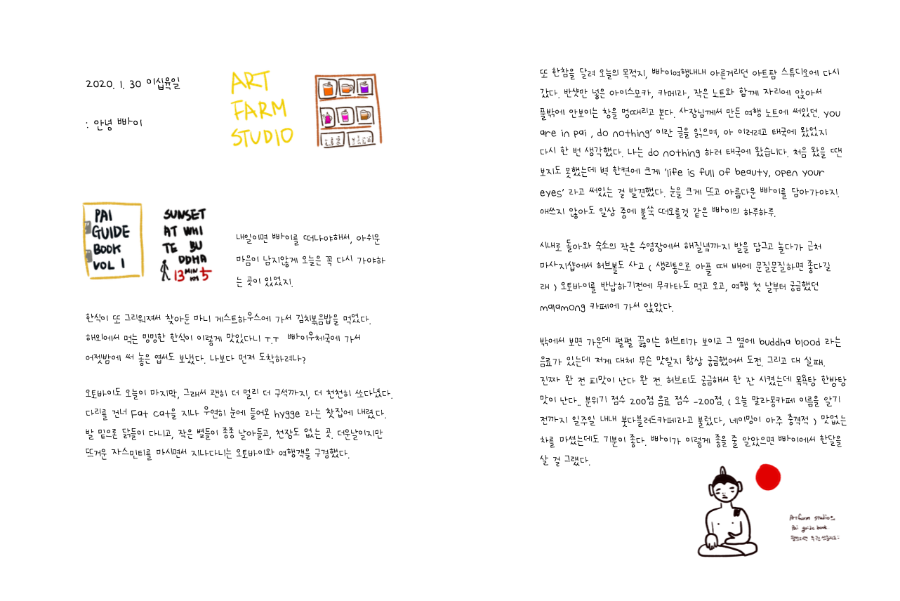 2020. 1. 30 이십육일
: 안녕 빠이
ART
FARM
STUDIO
PAI
GUIDE
BOOK
VOL 1
SUNSET
AT WHI
TE BU
DDHA
13 MIN 5
내일이면 빠이를 떠나야해서, 아쉬운
마음이 남지않게 오늘은 꼭 다시 가야하
는 곳이 있었지.
한식이 또 그리워져서 찾아든 마니 게스트하우스에 가서 김치볶음밥을 먹었다.
해외에서 먹는 밍밍한 한식이 이렇게 맛있다니 ㅜㅜ 빠이우체국에 가서
어젯밤에 써 놓은 엽서도 보냈다. 나보다 먼저 도착하려나?
오토바이도 오늘이 마지막, 그래서 괜히 더 멀리 더 구석까지, 더 천천히 쏘다녔다.
다리를 건너 Fat cat을 지나 우연히 눈에 들어온 hygge 라는 찻집에 내렸다.
발 밑으로 닭들이 다니고, 작은 벌들이 종종 날아들고, 천장도 없는 곳. 더운날이지만
뜨거운 자스민티를 마시면서 지나다니는 오토바이와 여행객을 구경했다.
또 한참을 달려 오늘의 목적지, 빠이여행내내 아른거리던 아트팜 스튜디오에 다시
갔다. 반샷만 넣은 아이스모카, 카메라, 작은 노트와 함께 자리에 앉아서
풀밖에 안보이는 창을 멍때리고 본다. 사장님께서 만든 여행 노트에 써있던, you
are in pai , do nothing' 이란 글을 읽으며, 아 이러려고 태국에 왔었지
다시 한 번 생각했다. 나는 do nothing 하러 태국에 왔습니다. 처음 왔을 땐
보지도 못했는데 벽 한켠에 크게 'life is full of beauty, open your
eyes' 라고 써있는 걸 발견했다. 눈을 크게 뜨고 아름다운 빠이를 담아가야지!
애쓰지 않아도 일상 중에 불쑥 떠오를것 같은 빠이의 하루하루.
시내로 돌아와 숙소의 작은 수영장에서 해질녘까지 발을 담그고 놀다가 근처
마사지샵에서 허브볼도 사고 ( 생리통으로 아플 때 배에 문질문질하면 좋다길
래 ) 오토바이를 반납하기전에 무카타도 먹고 오고, 여행 첫 날부터 궁금했던
malamong 카페에 가서 앉았다.
밖에서 보면 가운데 펄펄 끓이는 허브티가 보이고 그 옆에 buddha blood 라는
음료가 있는데 저게 대체 무슨 맛일지 항상 궁금했어서 도전. 그리고 대 실패.
진짜 완 전 피맛이 난다 완 전. 허브티도 궁금해서 한 잔 시켰는데 목욕탕 한방탕
맛이 난다.. 분위기 점수 200점 음료 점수 -200점. ( 오늘 말라몽카페 이름을 알기
전까지 일주일 내내 붓다블러드카페라고 불렀다, 네이밍이 아주 충격적 ) 맛없는
차를 마셨는데도 기분이 좋다. 빠이가 이렇게 좋을 줄 알았으면 빠이에서 한달을
살 걸 그랬다.
Artfarm studio's
Pai guide book